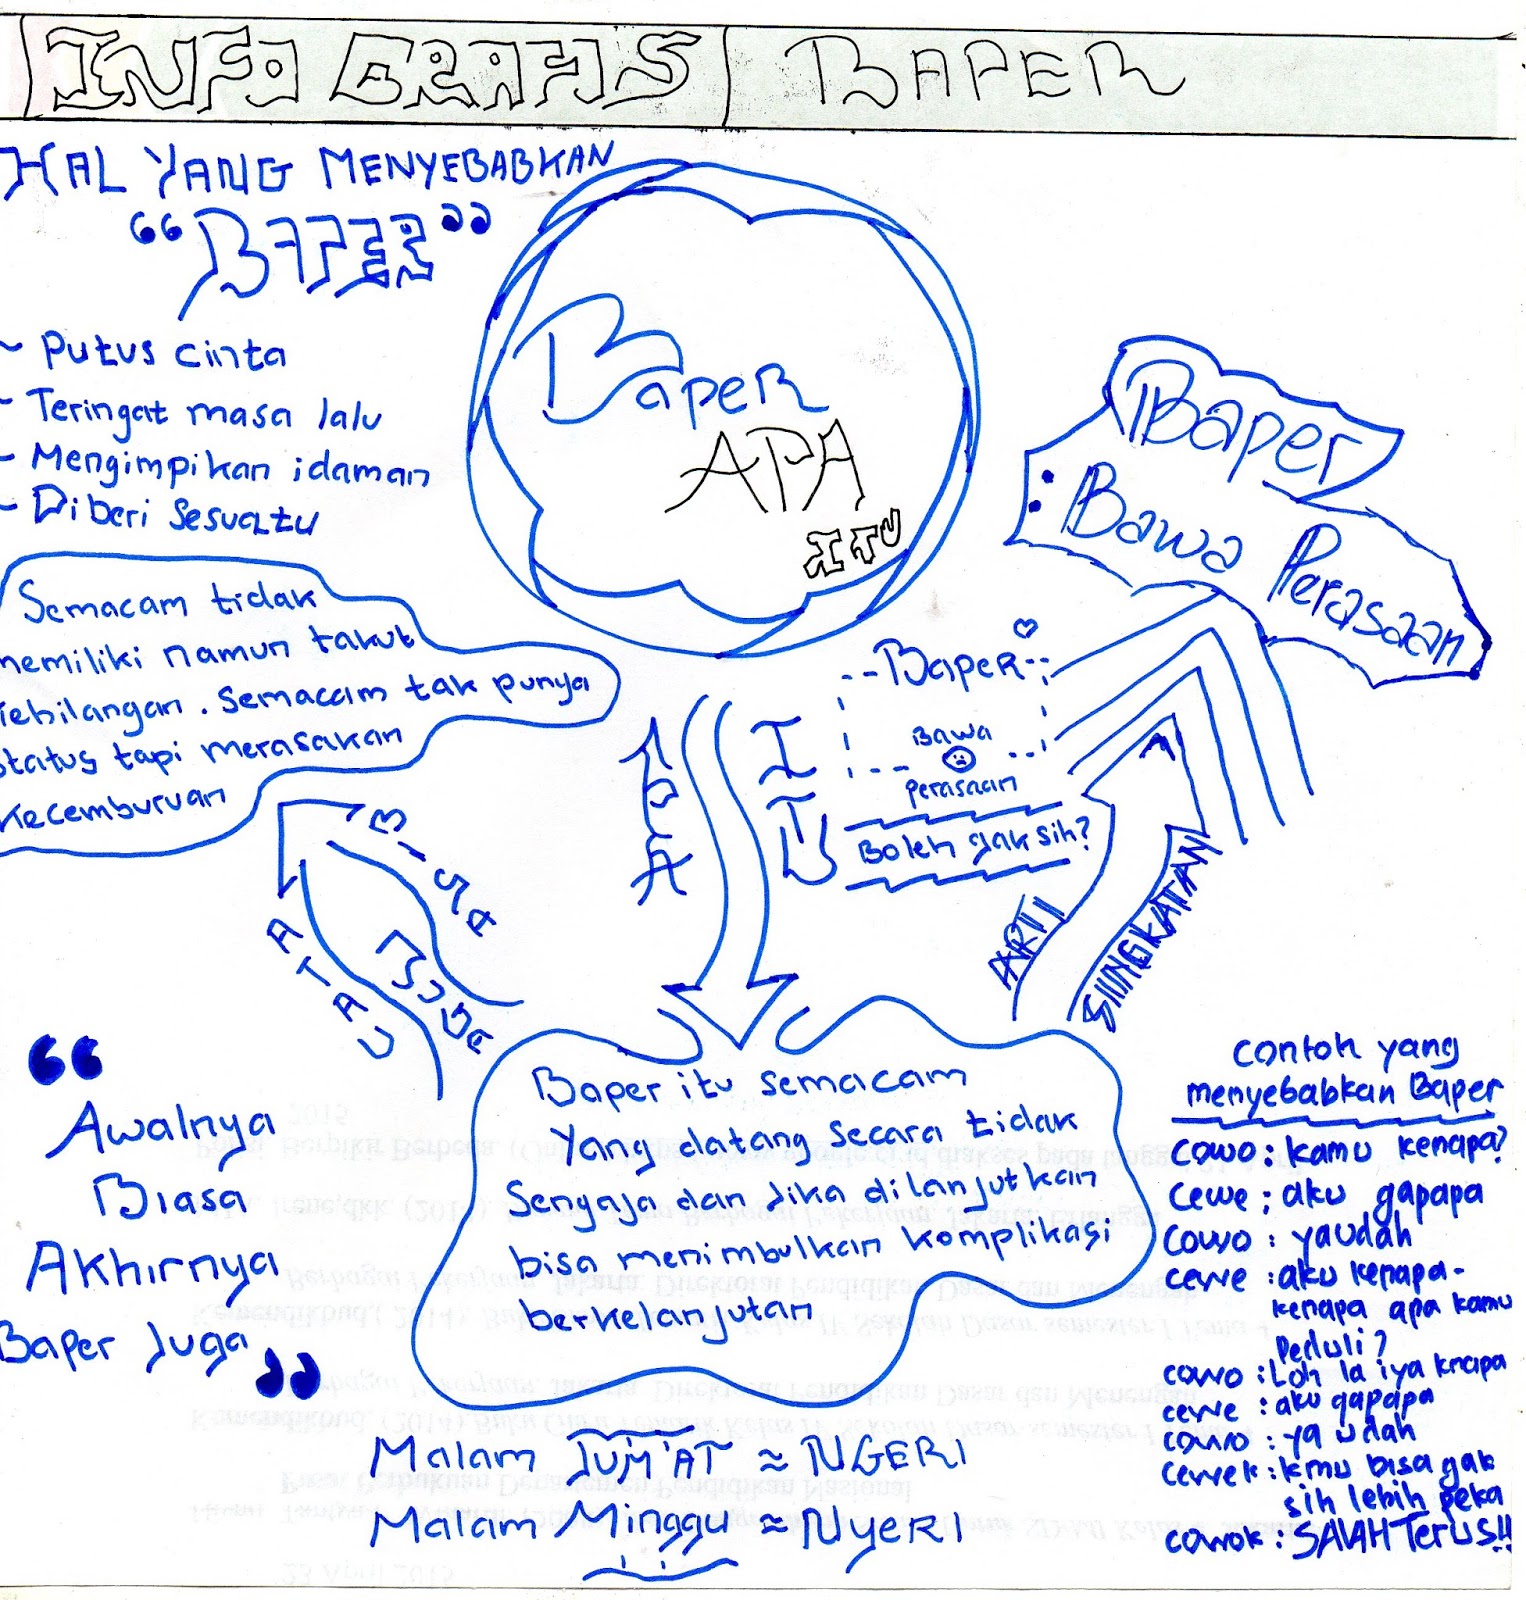 INFO GRAFIS BAPER
HAL YANG MENYEBABKAN
“BAPER”
~ Putus cinta
- Teringat masa lalu
- Mengimpikan idaman
- Diberi Sesuatu
Semacam tidak
memiliki namun takut
kehilangan. semacam tak punya
status tapi merasakan
kecemburuan
Baper
APA
ITU
Baper
: Bawa Perasaan
--Baper--
Bawa
perasaan
Boleh gak sih?
APA
ITU
ARTI
SINGKATAN
ATAU
BISA
JUGA
“
Awalnya
Biasa
Akhirnya
Baper Juga
”
Baper itu semacam
yang datang secara tidak
sengaja dan jika dilanjutkan
bisa menimbulkan komplikasi
berkelanjutan
Malam JUM'AT ≈ NGERI
Malam Minggu ≈ NyERI
Contoh yang
menyebabkan Baper
cowo : kamu kenapa?
cewe : aku gapapa
cowo : yaudah
cewe : aku kenapa-
kenapa apa kamu
Perduli?
cowo : Loh la iya knapa
cewe : aku gapapa
cowo : ya udah
cewek : kmu bisa gak
sih lebih peka
cowok : SALAH Terus!!
23 April 2015